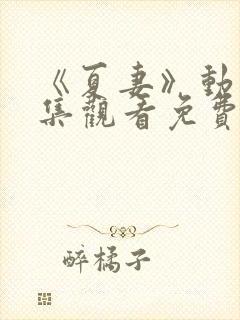 《夏妻》動
集觀看免費
醉橘子